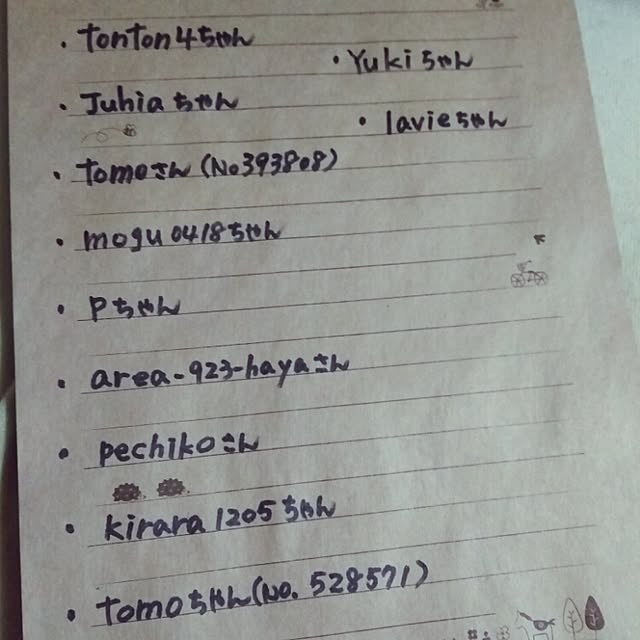 ・tonton4ちゃん
・Yukiちゃん
・Juhiaちゃん
・lavieちゃん
・tomoさん(No393808)
・mogu0418ちゃん
・Pちゃん
・area-923-hayaさん
・pechikoさん
・kirara1205ちゃん
・tomoちゃん(No.528571)